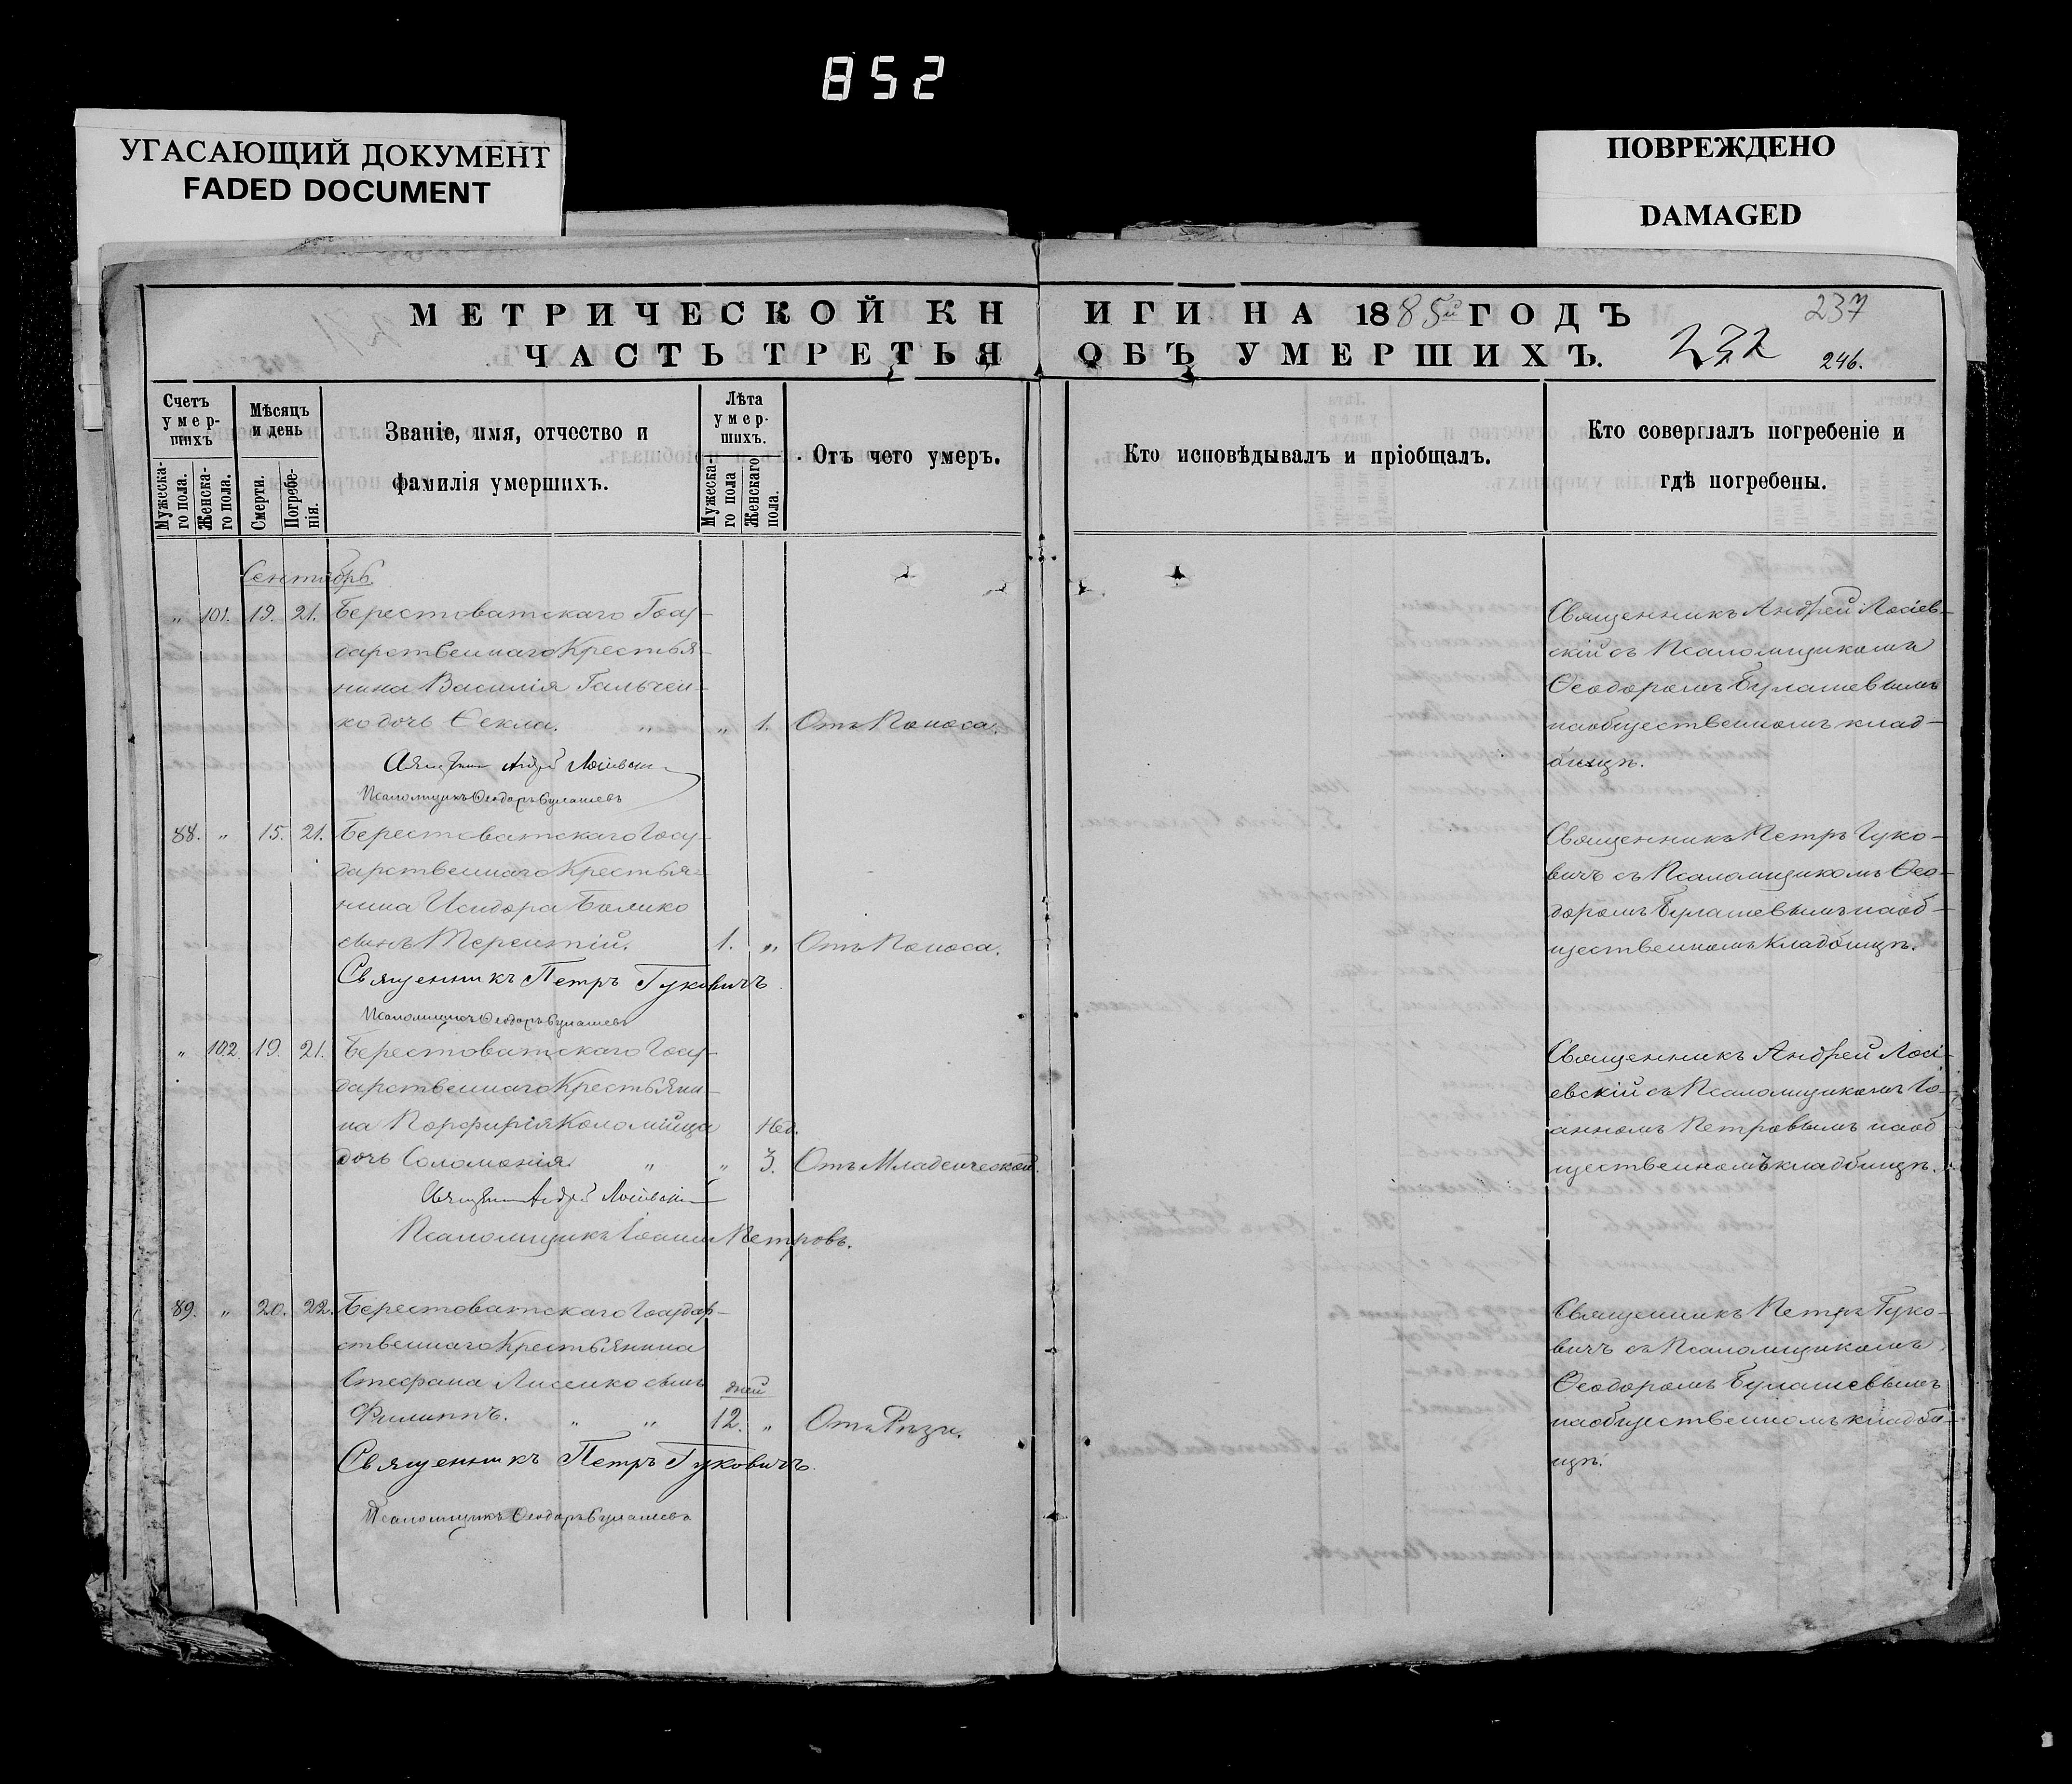 852
УГАСАЮЩИЙ ДОКУМЕНТ
FADED DOCUMENT
ПОВРЕЖДЕНО
DAMAGED
МЕТРИЧЕСКОЙ КНИГИ НА 1885й ГОДЪ
237
ЧАСТЬ ТРЕТЬЯ ОБЪ УМЕРШИХЪ.
232
246.
Счетъ умер-шихъ
Мужеска-го пола.
Женска-го пола.
Мѣсяцъ и день
Смерти.
Погребе-нія.
Званіе, имя, отчество и
фамилія умершихъ.
Лѣта умер-шихъ.
Мужеска-го пола
Женскаго пола.
Отъ чего умеръ.
Кто исповѣдывалъ и пріобщалъ.
Кто совершалъ погребеніе и
гдѣ погребены.
Сентябрь
„ 101. 19. 21. Берестоватскаго Госу-
дарственнаго Крестья-
нина Василія Гальчен-
ко дочь Ѳекла. „ „ 1. Отъ Поноса.
Священникъ Андрей Лосіевскій
Псаломщикъ Ѳеодоръ Булашевъ
Священникъ Андрей Лосіев-
скій съ Псаломщикомъ
Ѳеодоромъ Булашевымъ
на общественномъ клад-
бищѣ.
88. „ 15. 21. Берестоватскаго Госу-
дарственнаго Крестья-
нина Исидора Балико
сынъ Терентій. 1. „ Отъ Поноса.
Священникъ Петръ Гуковичъ
Псаломщикъ Ѳеодоръ Булашевъ
Священникъ Петръ Гуко-
вичъ съ Псаломщикомъ Ѳео-
доромъ Булашевымъ на об-
щественномъ кладбищѣ.
„ 102. 19. 21. Берестоватскаго Госу-
дарственнаго Крестьяни-
на Порфирія Коломійца Нед.
дочь Соломонія. „ „ 3. Отъ Младенческой.
Священникъ Андрей Лосіевскій
Псаломщикъ Іоаннъ Петровъ.
Священникъ Андрей Лосі-
евскій съ Псаломщикомъ Іо-
анномъ Петровымъ на об-
щественномъ кладбищѣ.
89. „ 20. 22. Берестоватскаго Государ-
ственнаго Крестьянина
Стефана Лисенко сынъ дней
Филиппъ. „ „ 12. „ Отъ Рѣзи.
Священникъ Петръ Гуковичъ
Псаломщикъ Ѳеодоръ Булашевъ
Священникъ Петръ Гуко-
вичъ съ Псаломщикомъ
Ѳеодоромъ Булашевымъ
на общественномъ кладби-
щѣ.